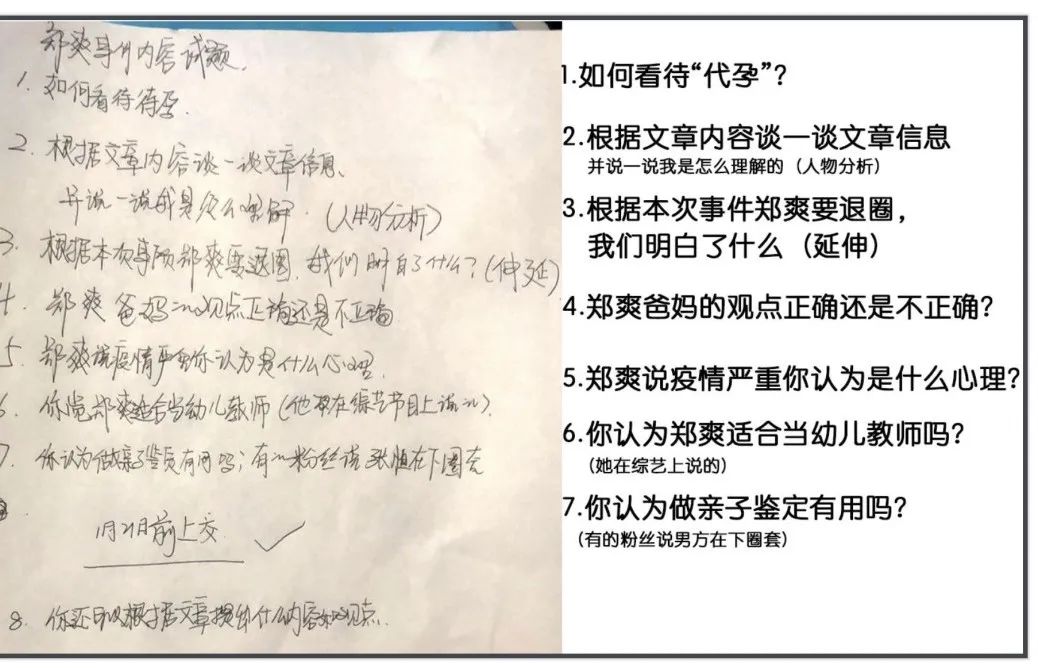 郑爽事件内容试题.
1. 如何看待待孕.
2. 根据文章内容谈一谈文章信息、
并说一说我是怎么理解.(人物分析)
3. 根据本次事项郑爽要退圈.我们明白了什么?(伸延)
4. 郑爽爸妈的观点正确还是不正确
5. 郑爽说疫情严重你认为是什么心理.
6. 你觉郑爽适合当幼儿教师(他要在综艺节目上说的).
7. 你认为做亲子鉴定有用吗;有的粉丝说张恒在下圈套
前上交
8. 你还可以根据文章提出什么内容和观点.
1.如何看待“代孕”?
2.根据文章内容谈一谈文章信息
并说一说我是怎么理解的(人物分析)
3.根据本次事件郑爽要退圈,
我们明白了什么(延伸)
4.郑爽爸妈的观点正确还是不正确?
5.郑爽说疫情严重你认为是什么心理?
6.你认为郑爽适合当幼儿教师吗?
(她在综艺上说的)
7.你认为做亲子鉴定有用吗?
(有的粉丝说男方在下圈套)